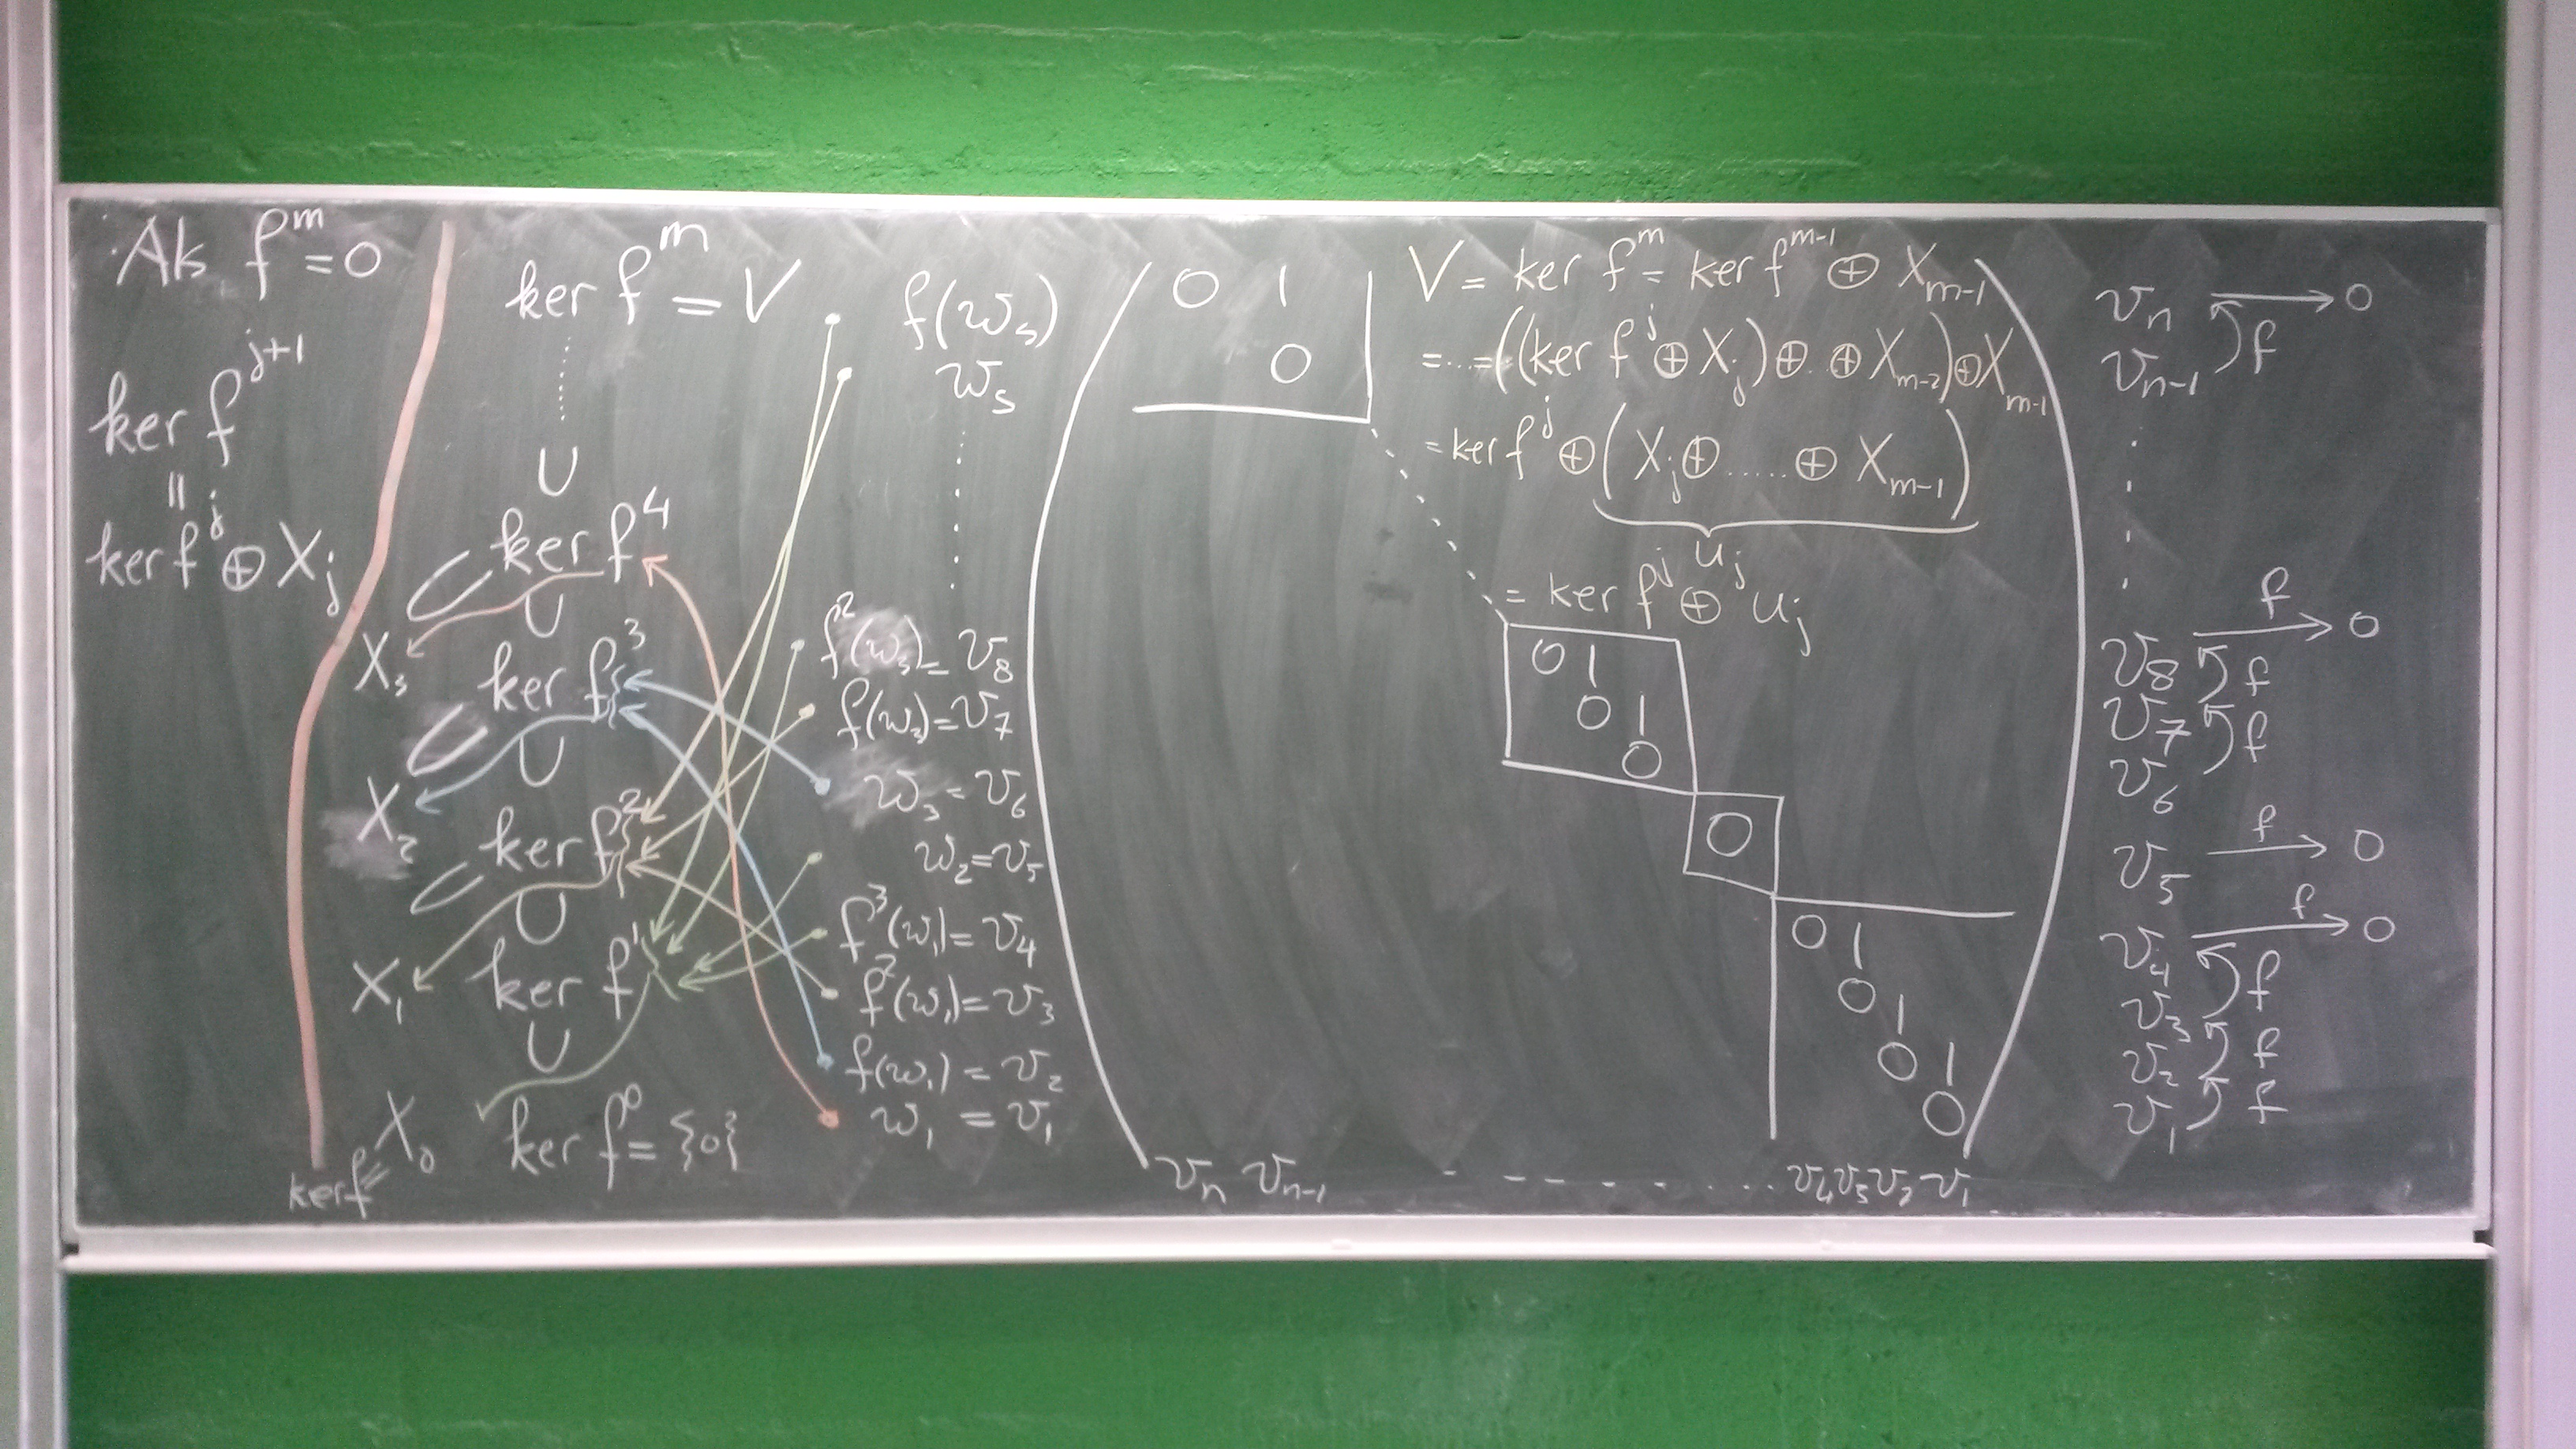 Ak f^m = 0
ker f^{j+1}
||
ker f^j ⊕ X_j
ker f^m = V
∪
ker f^4
∪
X_3
ker f^3
∪
X_2
ker f^2
∪
X_1
ker f^1
∪
X_0
ker f^0 = {0}
ker f =
f(w_s)
w_s
f^2(w_3) = v_8
f(w_3) = v_7
w_3 = v_6
w_2 = v_5
f^3(w_1) = v_4
f^2(w_1) = v_3
f(w_1) = v_2
w_1 = v_1
0 1
0
V = ker f^m = ker f^{m-1} ⊕ X_{m-1}
= ... = ((ker f^j ⊕ X_j) ⊕ .. ⊕ X_{m-2}) ⊕ X_{m-1}
= ker f^j ⊕ (X_j ⊕ ..... ⊕ X_{m-1})
U_j
= ker f^j ⊕ U_j
0 1
0 1
0
0
0 1
0 1
0 1
0
v_n v_{n-1} - - - - - - - ... v_4 v_3 v_2 v_1
v_n → 0
v_{n-1} f
f
v_8 → 0
f
v_7
f
v_6
f
v_5 → 0
f
v_4 → 0
f
v_3
v_2 f
v_1 f